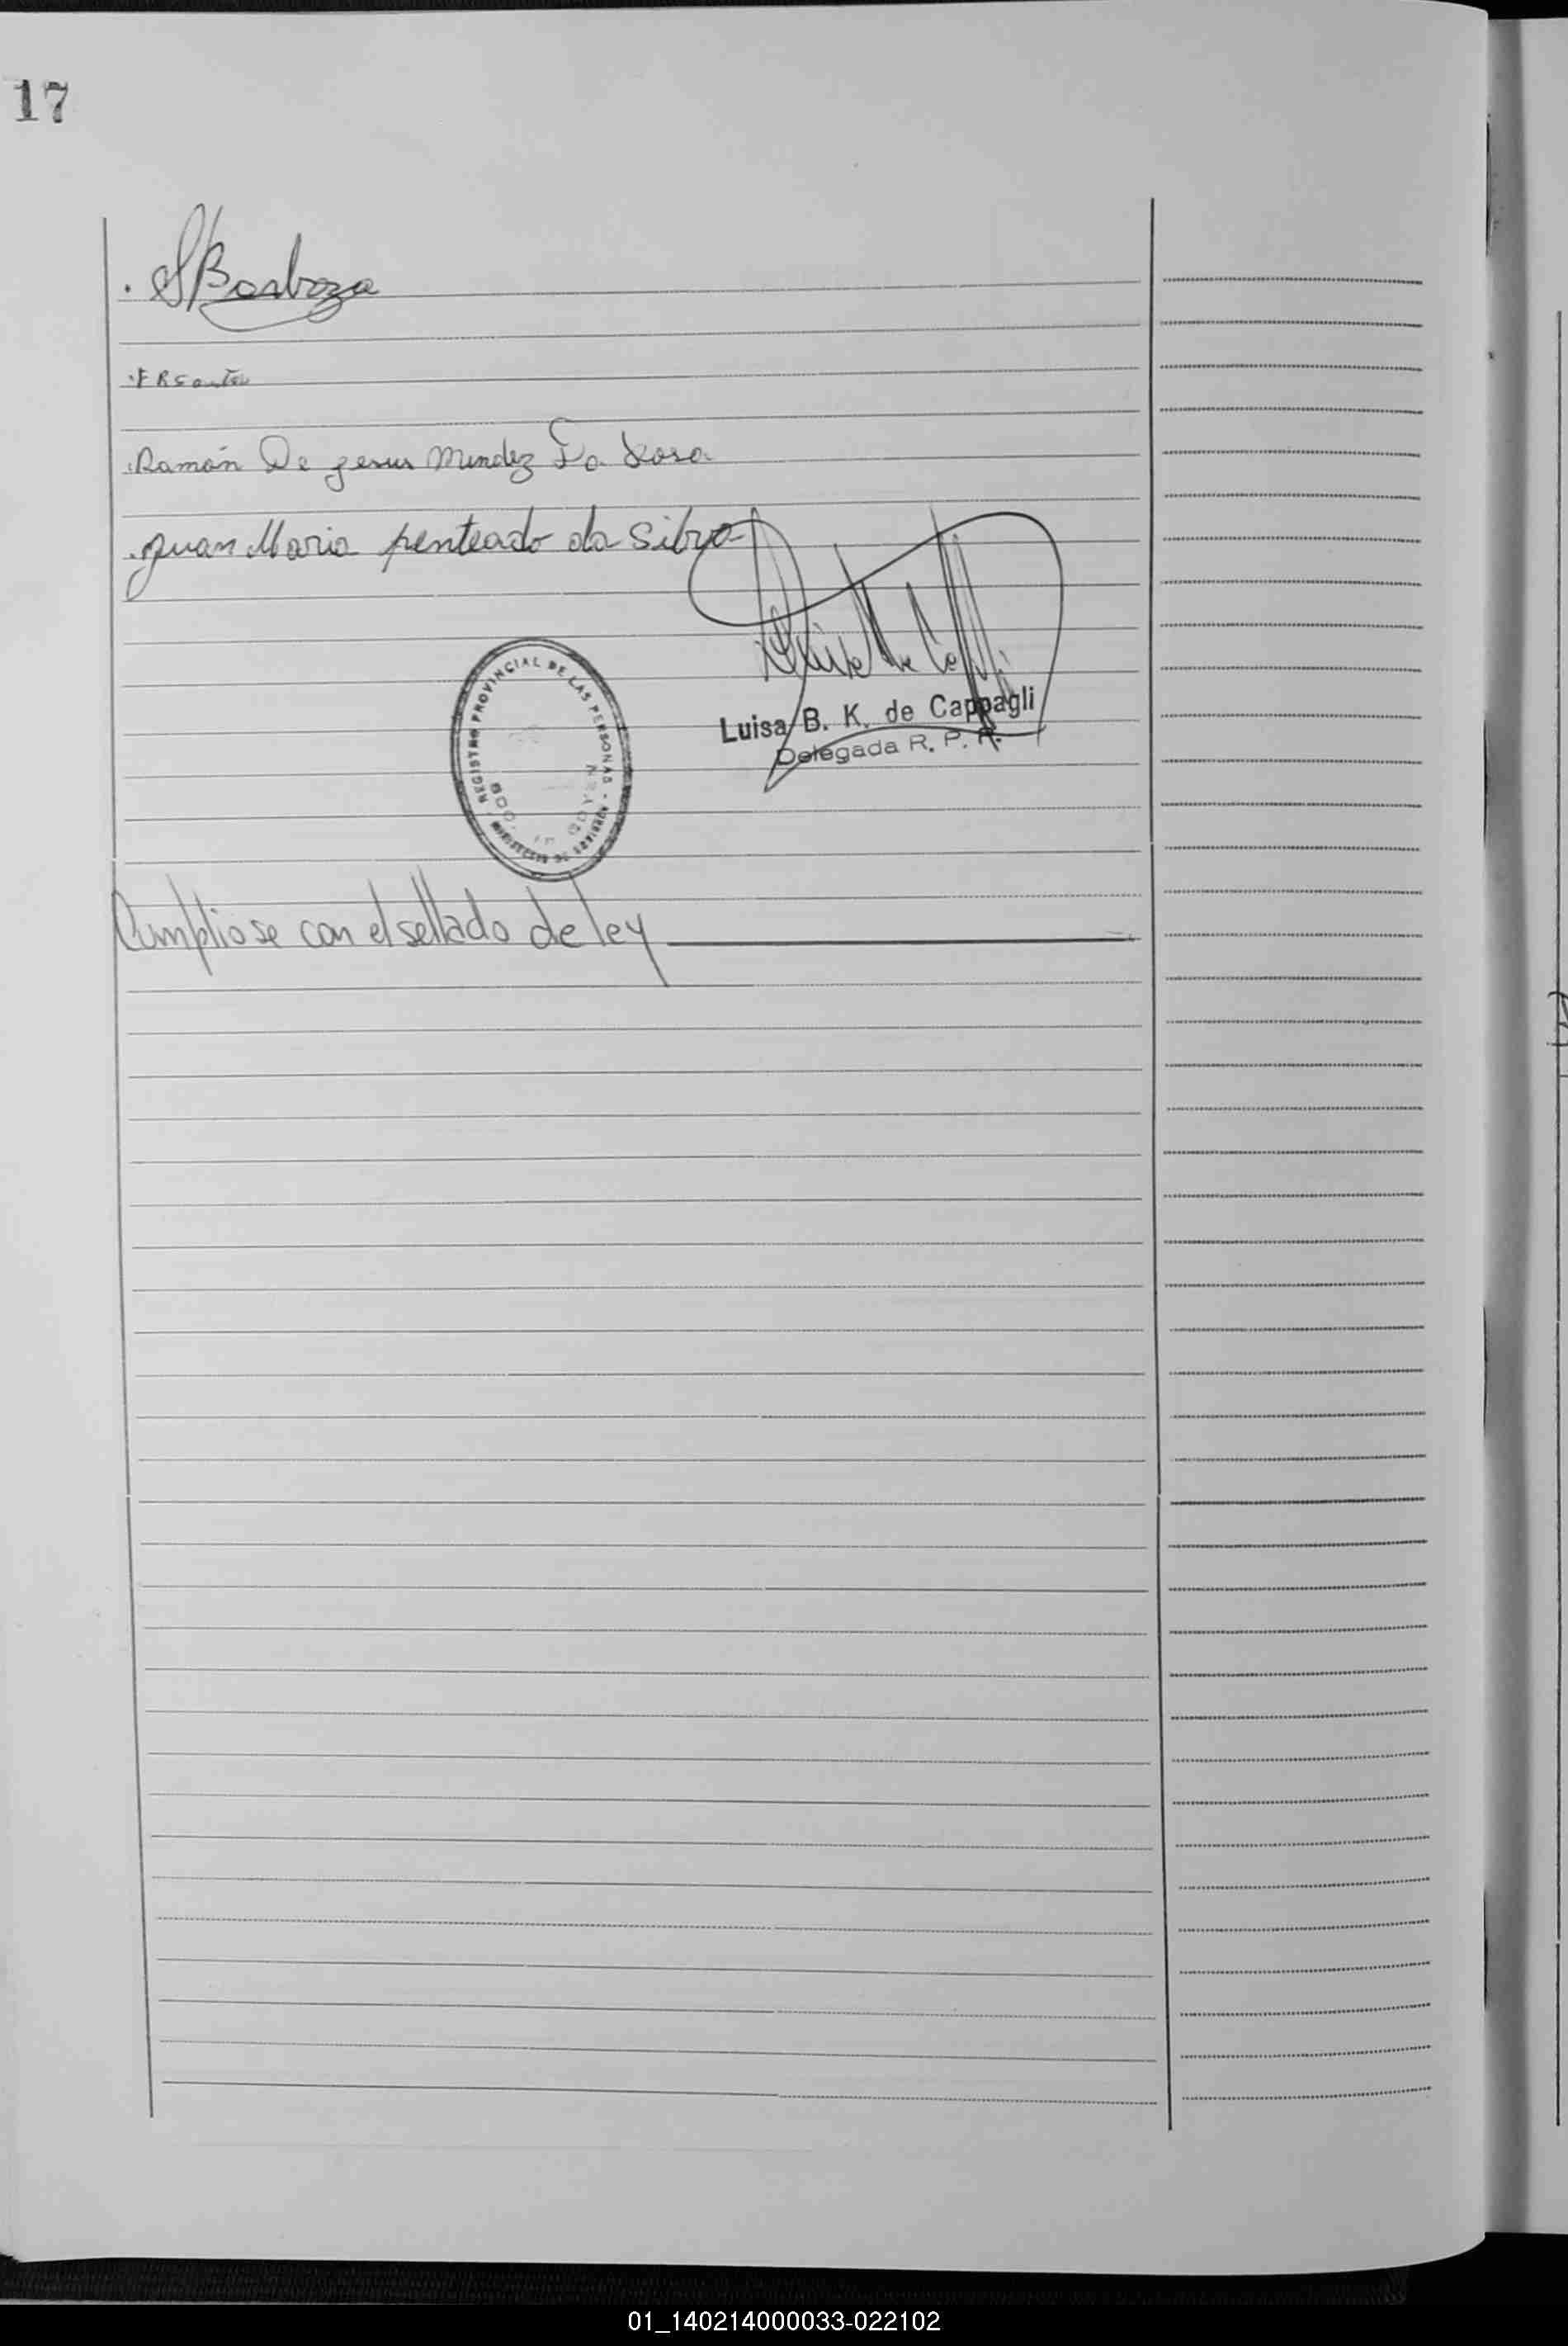 17
Barboza
Ramón De jesus Mendez Da Rosa
Juan Mario penteado da Silva
REGISTRO PROVINCIAL DE LAS PERSONAS
MINISTERIO DE GOBIERNO
BDO. DE IRIGOYEN
Luisa B. K. de Cappagli
Delegada R. P. P.
Cumpliose con el sellado de ley
01_140214000033-022102